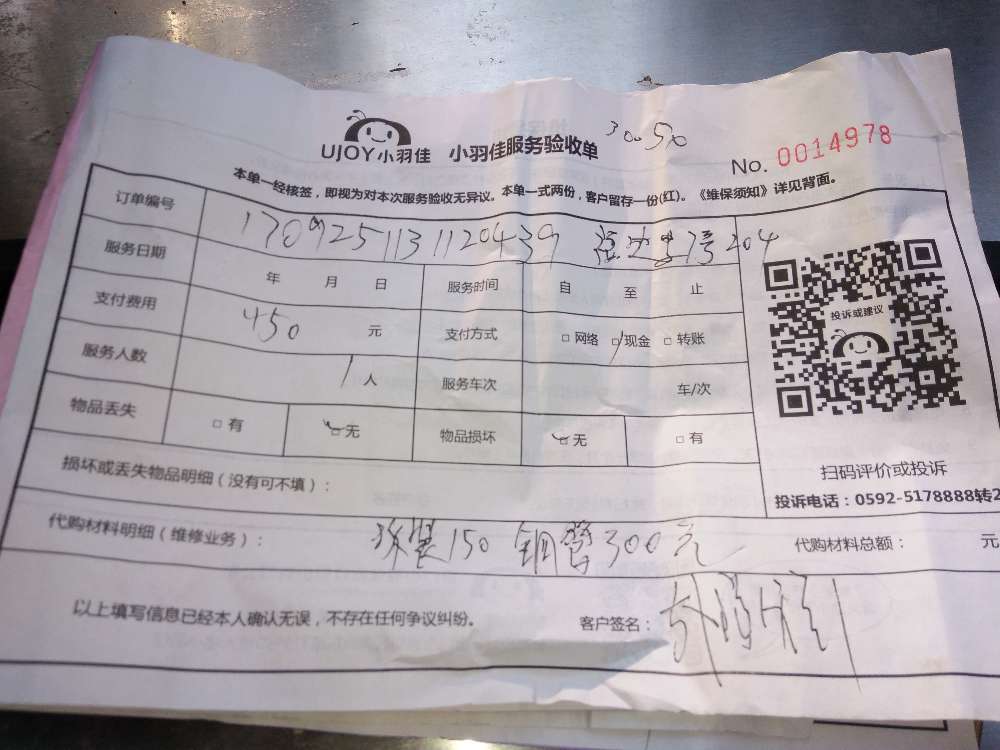 UJOY小羽佳 小羽佳服务验收单 3050
No. 0014978
本单一经核签，即视为对本次服务验收无异议。本单一式两份，客户留存一份(红)。《维保须知》详见背面。
订单编号 1709251131120439 204
服务日期 年 月 日 服务时间 自 至 止
支付费用 450 元 支付方式 □ 网络 □ 现金 □ 转账
服务人数 1 人 服务车次 车/次
物品丢失 □ 有 □ 无 物品损坏 □ 无 □ 有
投诉或建议
扫码评价或投诉
投诉电话：0592-5178888转2
损坏或丢失物品明细（没有可不填）：
代购材料明细（维修业务）： 拆装150 铜管300元 代购材料总额： 元
以上填写信息已经本人确认无误，不存在任何争议纠纷。 客户签名：